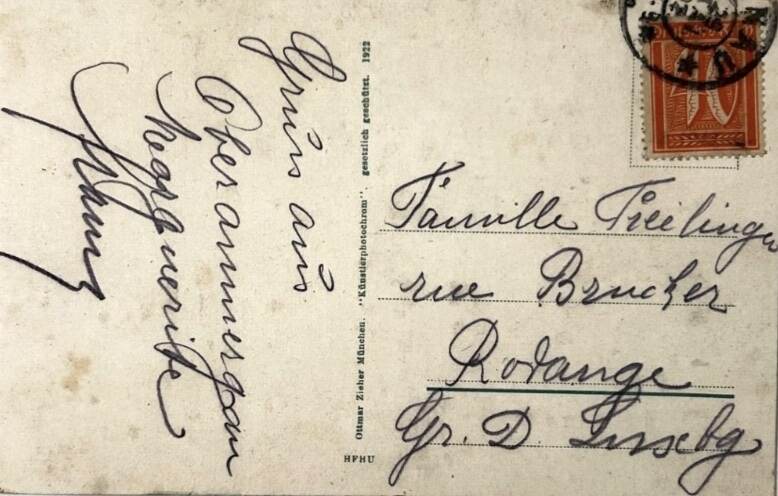 Gruss aus
Oberammergau
Marguerite
Ottmar Zieher München. "Künstlerphotochrom", gesetzlich geschützt. 1922
HFHU
40
Famille Freilinger
rue Brucher
Rodange
Gr. D. Luxbg